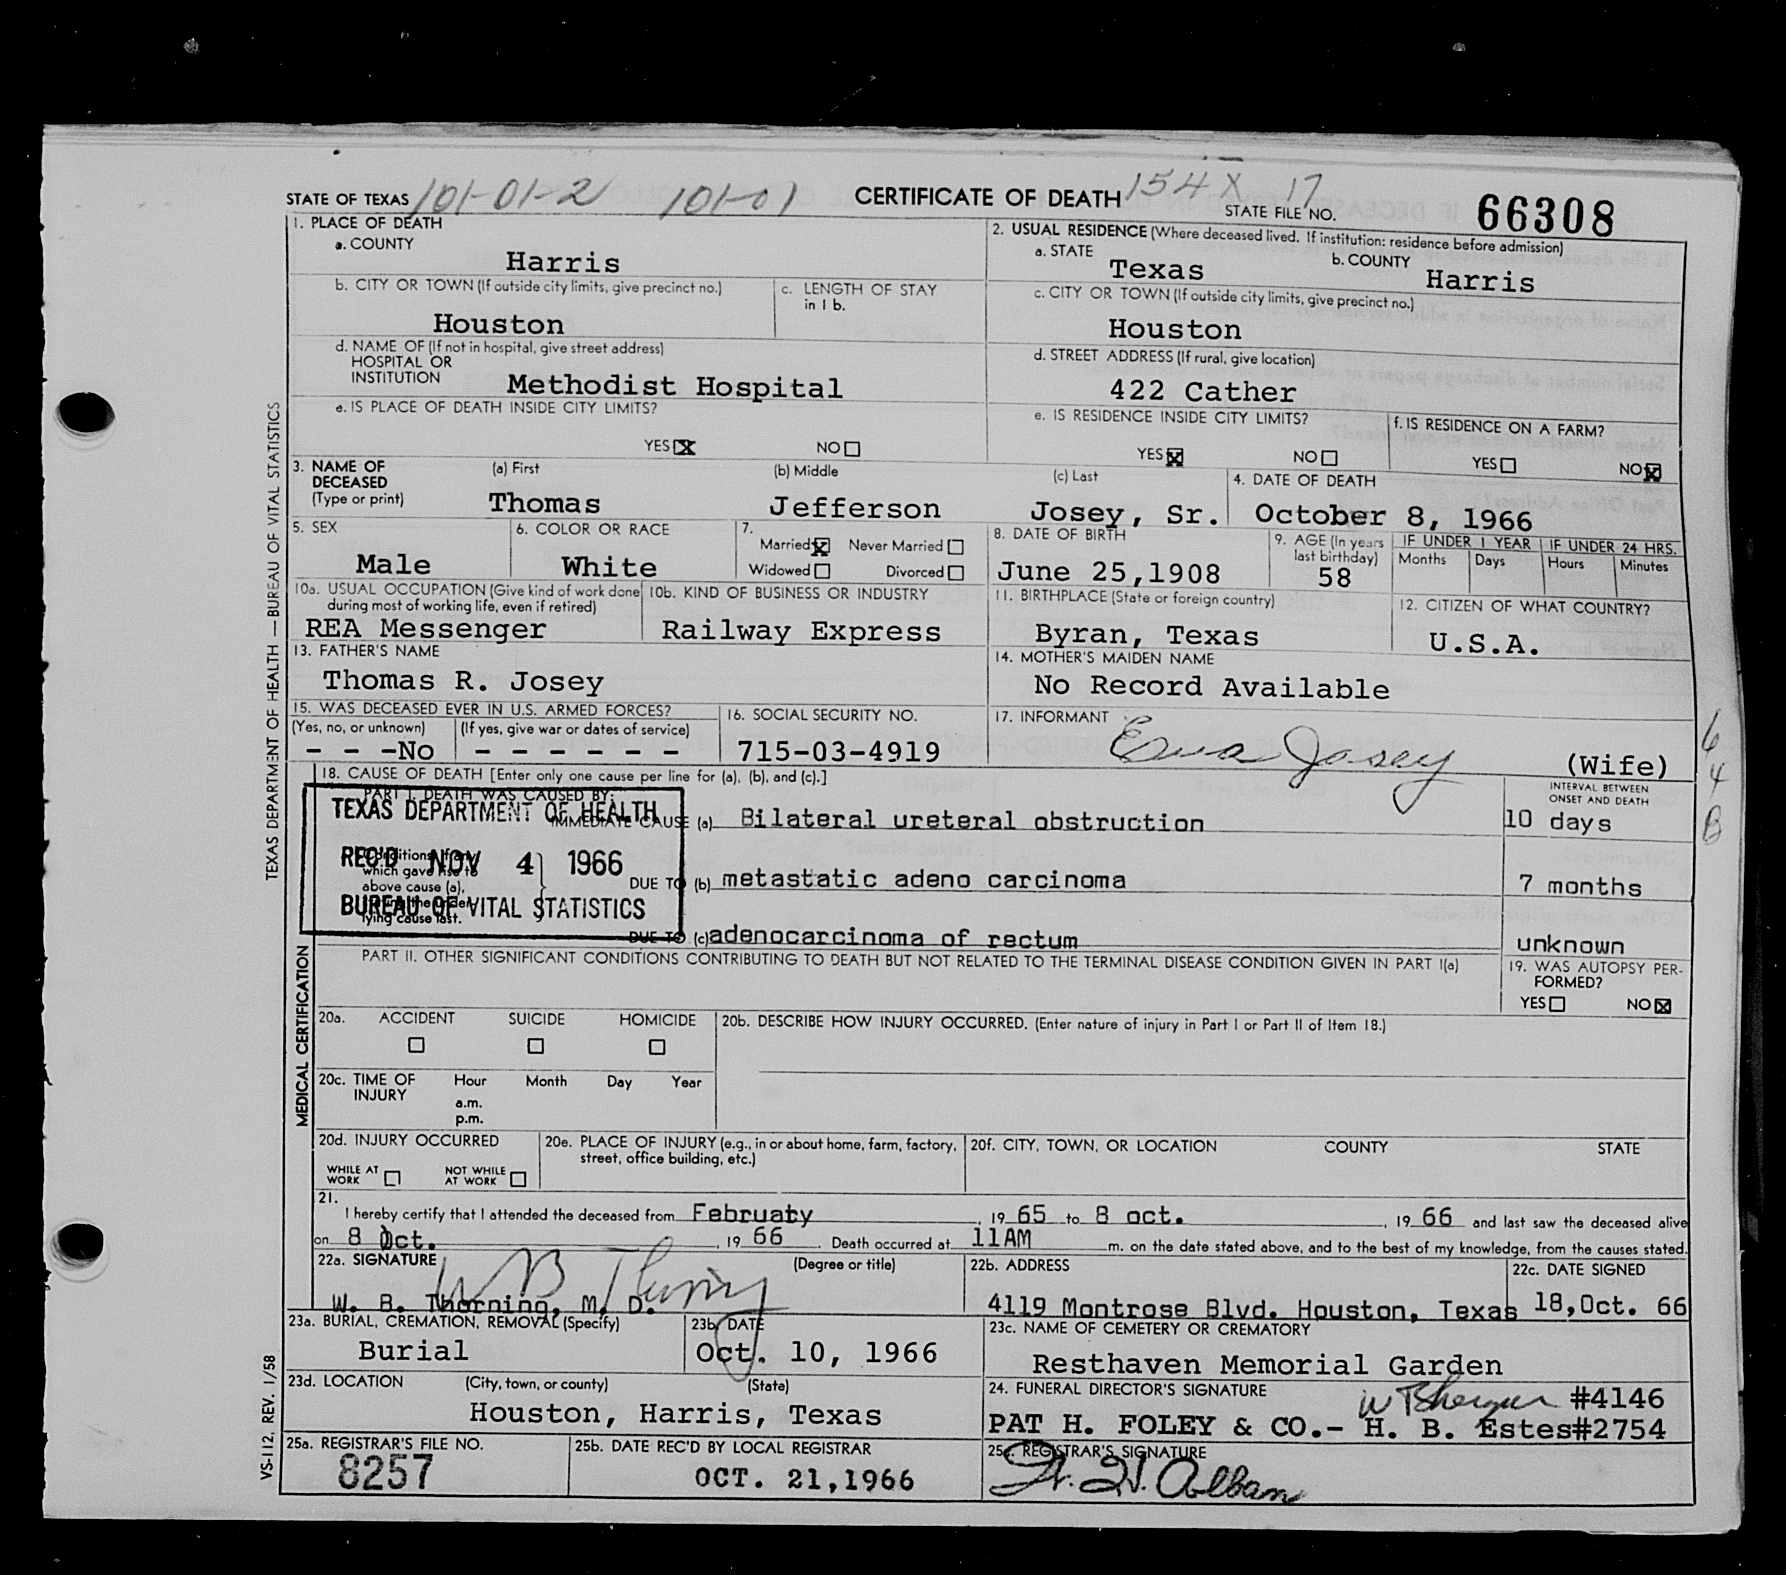 STATE OF TEXAS 101-01-2 101-01 CERTIFICATE OF DEATH 154X 17 STATE FILE NO. 66308
1. PLACE OF DEATH
a. COUNTY
Harris
2. USUAL RESIDENCE (Where deceased lived. If institution: residence before admission)
a. STATE Texas b. COUNTY Harris
b. CITY OR TOWN (If outside city limits, give precinct no.)
Houston
c. LENGTH OF STAY
in 1 b.
c. CITY OR TOWN (If outside city limits, give precinct no.)
Houston
d. NAME OF (If not in hospital, give street address)
HOSPITAL OR
INSTITUTION Methodist Hospital
d. STREET ADDRESS (If rural, give location)
422 Cather
e. IS PLACE OF DEATH INSIDE CITY LIMITS?
YES X NO
e. IS RESIDENCE INSIDE CITY LIMITS?
YES X NO
f. IS RESIDENCE ON A FARM?
YES NO X
3. NAME OF
DECEASED
(Type or print)
(a) First (b) Middle (c) Last
Thomas Jefferson Josey, Sr.
4. DATE OF DEATH
October 8, 1966
5. SEX
Male
6. COLOR OR RACE
White
7.
Married X Never Married
Widowed Divorced
8. DATE OF BIRTH
June 25,1908
9. AGE (In years
last birthday)
58
IF UNDER 1 YEAR IF UNDER 24 HRS.
Months Days Hours Minutes
10a. USUAL OCCUPATION (Give kind of work done
during most of working life, even if retired)
REA Messenger
10b. KIND OF BUSINESS OR INDUSTRY
Railway Express
11. BIRTHPLACE (State or foreign country)
Byran, Texas
12. CITIZEN OF WHAT COUNTRY?
U.S.A.
13. FATHER'S NAME
Thomas R. Josey
14. MOTHER'S MAIDEN NAME
No Record Available
15. WAS DECEASED EVER IN U.S. ARMED FORCES?
(Yes, no, or unknown) (If yes, give war or dates of service)
- - -No - - - - - -
16. SOCIAL SECURITY NO.
715-03-4919
17. INFORMANT
Josey (Wife)
64B
18. CAUSE OF DEATH [Enter only one cause per line for (a), (b), and (c).]
PART I. DEATH WAS CAUSED BY:
IMMEDIATE CAUSE (a) Bilateral ureteral obstruction
INTERVAL BETWEEN
ONSET AND DEATH
10 days
TEXAS DEPARTMENT OF HEALTH
REC'D NOV 4 1966
BUREAU OF VITAL STATISTICS
Conditions, if any,
which gave rise to
above cause (a),
stating the under-
lying cause last.
DUE TO (b) metastatic adeno carcinoma
7 months
DUE TO (c) adenocarcinoma of rectum
unknown
PART II. OTHER SIGNIFICANT CONDITIONS CONTRIBUTING TO DEATH BUT NOT RELATED TO THE TERMINAL DISEASE CONDITION GIVEN IN PART I(a)
19. WAS AUTOPSY PER-
FORMED?
YES NO X
20a. ACCIDENT SUICIDE HOMICIDE
20b. DESCRIBE HOW INJURY OCCURRED. (Enter nature of injury in Part I or Part II of Item 18.)
20c. TIME OF
INJURY
Hour Month Day Year
a.m.
p.m.
20d. INJURY OCCURRED
WHILE AT
WORK
NOT WHILE
AT WORK
20e. PLACE OF INJURY (e.g., in or about home, farm, factory,
street, office building, etc.)
20f. CITY, TOWN, OR LOCATION COUNTY STATE
21.
I hereby certify that I attended the deceased from Februaty, 19 65 to 8 oct., 19 66 and last saw the deceased alive
on 8 Oct., 19 66. Death occurred at 11AM m. on the date stated above, and to the best of my knowledge, from the causes stated.
22a. SIGNATURE (Degree or title)
W. B. Thorning, M. D.
22b. ADDRESS
4119 Montrose Blvd. Houston, Texas
22c. DATE SIGNED
18,Oct. 66
23a. BURIAL, CREMATION, REMOVAL (Specify)
Burial
23b. DATE
Oct. 10, 1966
23c. NAME OF CEMETERY OR CREMATORY
Resthaven Memorial Garden
23d. LOCATION (City, town, or county) (State)
Houston, Harris, Texas
24. FUNERAL DIRECTOR'S SIGNATURE
#4146
PAT H. FOLEY & CO.- H. B. Estes#2754
25a. REGISTRAR'S FILE NO.
8257
25b. DATE REC'D BY LOCAL REGISTRAR
OCT. 21,1966
25c. REGISTRAR'S SIGNATURE
TEXAS DEPARTMENT OF HEALTH — BUREAU OF VITAL STATISTICS
MEDICAL CERTIFICATION
VS-112, REV. 1/58